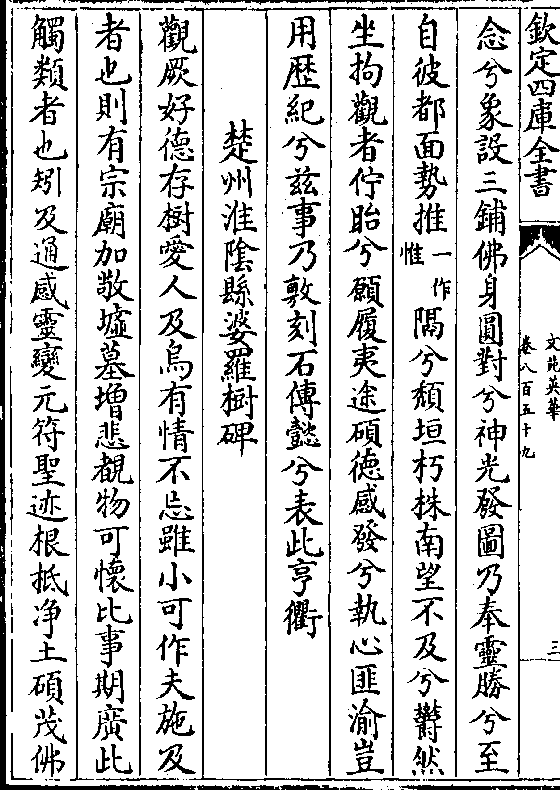 欽定四庫全書
文苑英華
卷八百五十九
三
念兮象設三鋪佛身圓對兮神光發圖乃奉靈勝兮至
自彼都面勢推一作惟隅兮頽垣朽株南望不及兮欝然
坐拘觀者佇眙兮願履夷途碩德感發兮執心匪渝豈
用歴紀兮兹事乃敦刻石傳懿兮表此亨衢
楚州淮隂縣婆羅樹碑
觀厥好德存樹愛人及烏有情不忘雖小可作夫施及
者也則有宗廟加敬墟墓増悲覩物可懷比事期廣此
觸類者也矧及通感靈變元符聖迹根抵净土碩茂佛